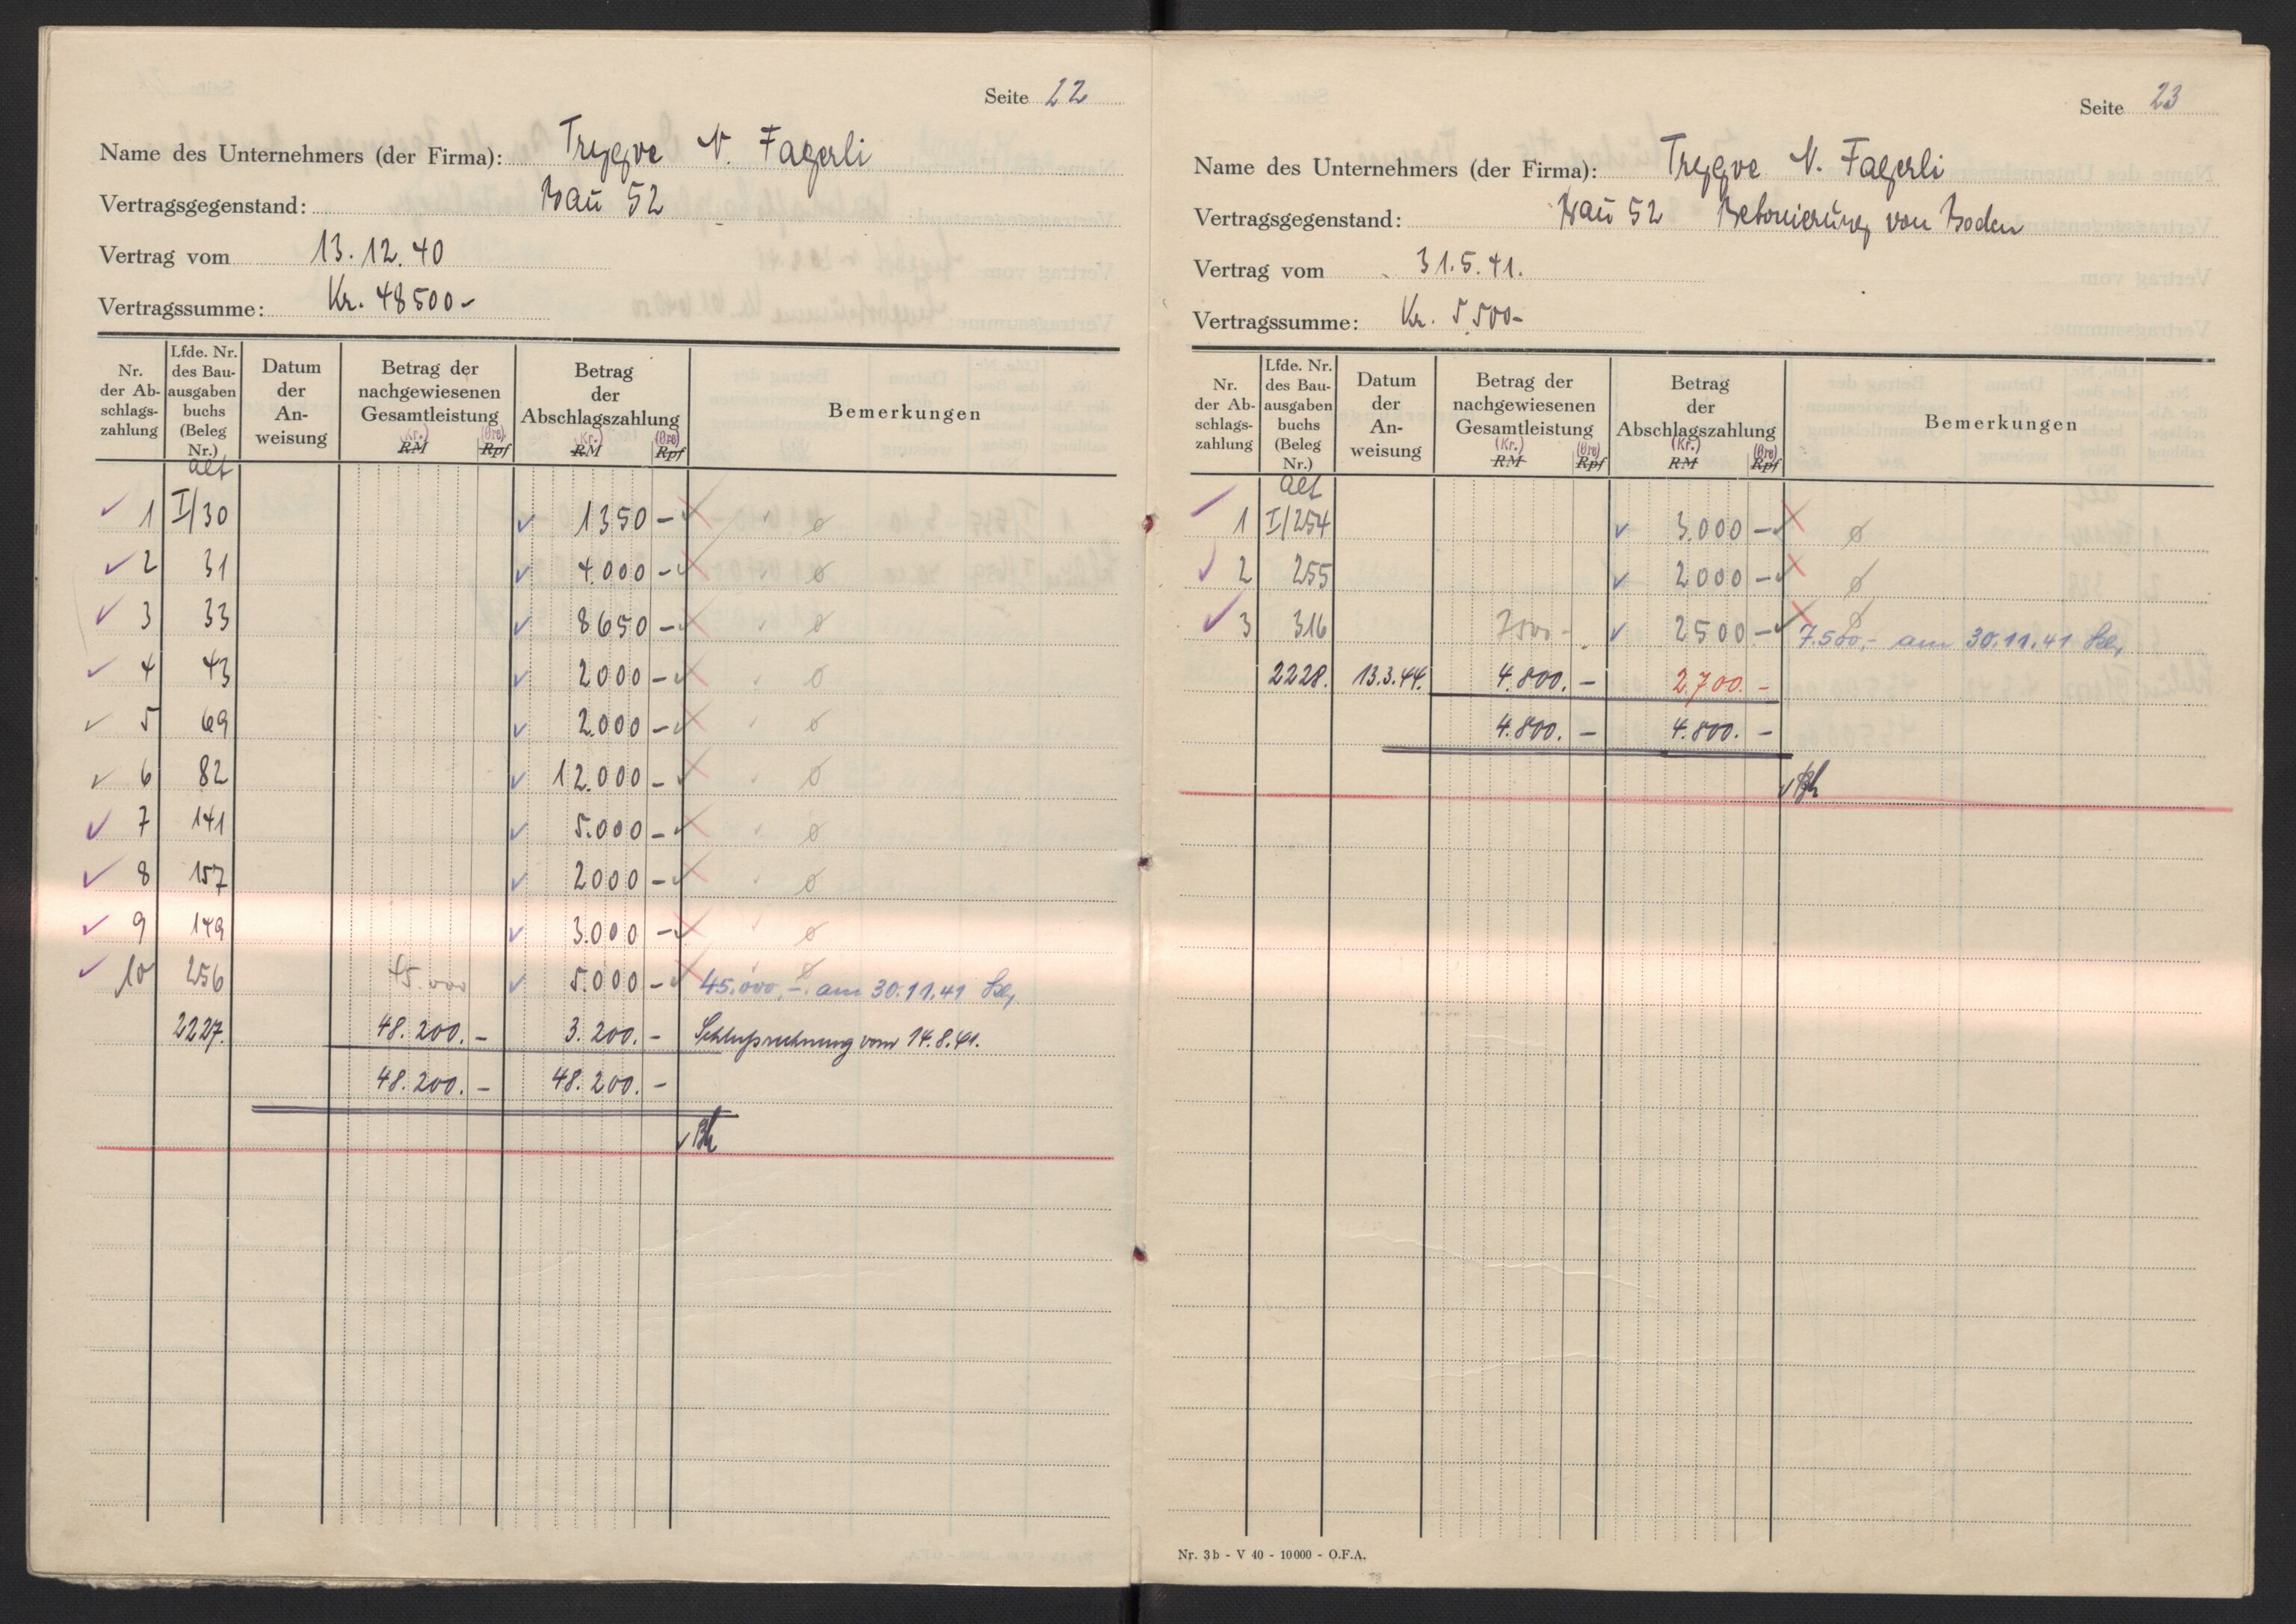 Seite 22
Name des Unternehmers (der Firma): Trygve N. Fagerli
Vertragsgegenstand: Bau 52
Vertrag vom 13.12.40
Vertragssumme: Kr. 48500-
Nr. der Ab-schlags-zahlung | Lfde. Nr. des Bau-ausgaben buchs (Beleg Nr.) | Datum der An-weisung | Betrag der nachgewiesenen Gesamtleistung (Kr.) RM (Øre) Rpf | Betrag der Abschlagszahlung (Kr.) RM (Øre) Rpf | Bemerkungen
alt
1 I/30 1350 -
2 31 4.000 -
3 33 8650 -
4 43 2000 -
5 69 2.000 -
6 82 12.000 -
7 141 5.000 -
8 157 2000 -
9 149 3.000 -
10 256 45.000 5.000 - 45.000,-. am 30.11.41
2227. 48.200.- 3.200.- Schlußrechnung vom 14.8.41.
48.200.- 48.200.-
Seite 23
Name des Unternehmers (der Firma): Trygve N. Fagerli
Vertragsgegenstand: Bau 52 Betonierung von Boden
Vertrag vom 31.5.41.
Vertragssumme: Kr. 5.500-
Nr. der Ab-schlags-zahlung | Lfde. Nr. des Bau-ausgaben buchs (Beleg Nr.) | Datum der An-weisung | Betrag der nachgewiesenen Gesamtleistung (Kr.) RM (Øre) Rpf | Betrag der Abschlagszahlung (Kr.) RM (Øre) Rpf | Bemerkungen
alt
1 I/254 3.000 -
2 255 2000 -
3 316 7500- 2500 - 7.500,- am 30.11.41
2228. 13.3.44. 4.800.- 2.700.-
4.800.- 4.800.-
Nr. 3b - V 40 - 10000 - O.F.A.